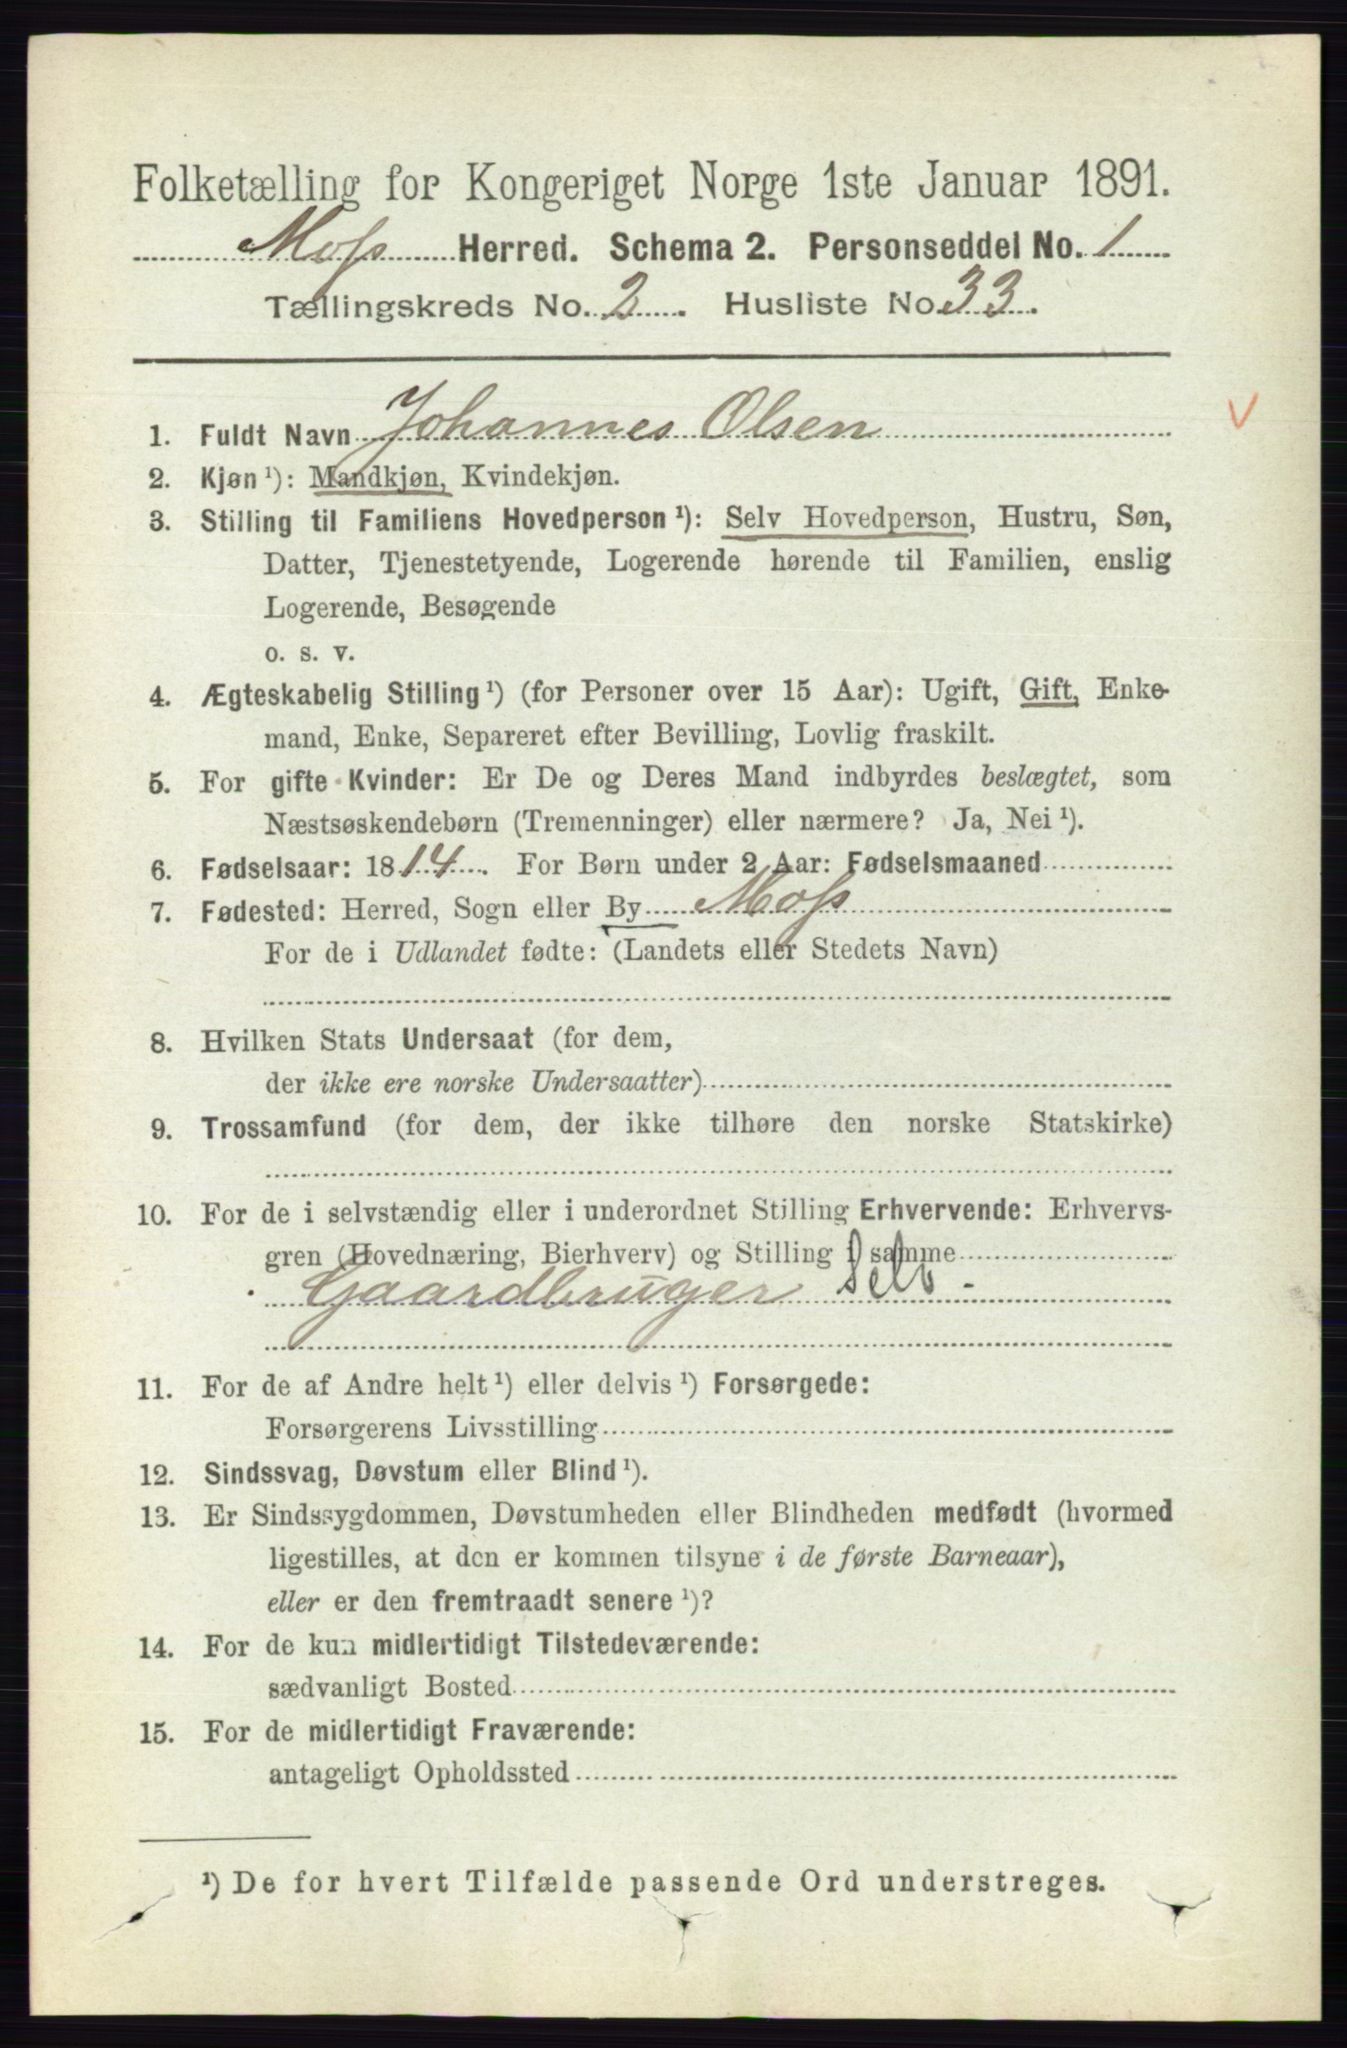 Folketælling for Kongeriget Norge 1ste Januar 1891.
Moss Herred. Schema 2. Personseddel No. 1
Tællingskreds No. 2. Husliste No. 33.
1. Fuldt Navn Johannes Olsen
2. Kjøn¹): Mandkjøn, Kvindekjøn.
3. Stilling til Familiens Hovedperson¹): Selv Hovedperson, Hustru, Søn,
Datter, Tjenestetyende, Logerende hørende til Familien, enslig
Logerende, Besøgende
o. s. v.
4. Ægteskabelig Stilling¹) (for Personer over 15 Aar): Ugift, Gift, Enke-
mand, Enke, Separeret efter Bevilling, Lovlig fraskilt.
5. For gifte Kvinder: Er De og Deres Mand indbyrdes beslægtet, som
Næstsøskendebørn (Tremenninger) eller nærmere? Ja, Nei¹).
6. Fødselsaar: 1814. For Børn under 2 Aar: Fødselsmaaned
7. Fødested: Herred, Sogn eller By Moss
For de i Udlandet fødte: (Landets eller Stedets Navn)
8. Hvilken Stats Undersaat (for dem,
der ikke ere norske Undersaatter)
9. Trossamfund (for dem, der ikke tilhøre den norske Statskirke)
10. For de i selvstændig eller i underordnet Stilling Erhvervende: Erhvervs-
gren (Hovednæring, Bierhverv) og Stilling i samme
Gaardbruger Selv -
11. For de af Andre helt¹) eller delvis¹) Forsørgede:
Forsørgerens Livsstilling
12. Sindssvag, Døvstum eller Blind¹).
13. Er Sindssygdommen, Døvstumheden eller Blindheden medfødt (hvormed
ligestilles, at den er kommen tilsyne i de første Barneaar),
eller er den fremtraadt senere¹)?
14. For de kun midlertidigt Tilstedeværende:
sædvanligt Bosted
15. For de midlertidigt Fraværende:
antageligt Opholdssted
¹) De for hvert Tilfælde passende Ord understreges.